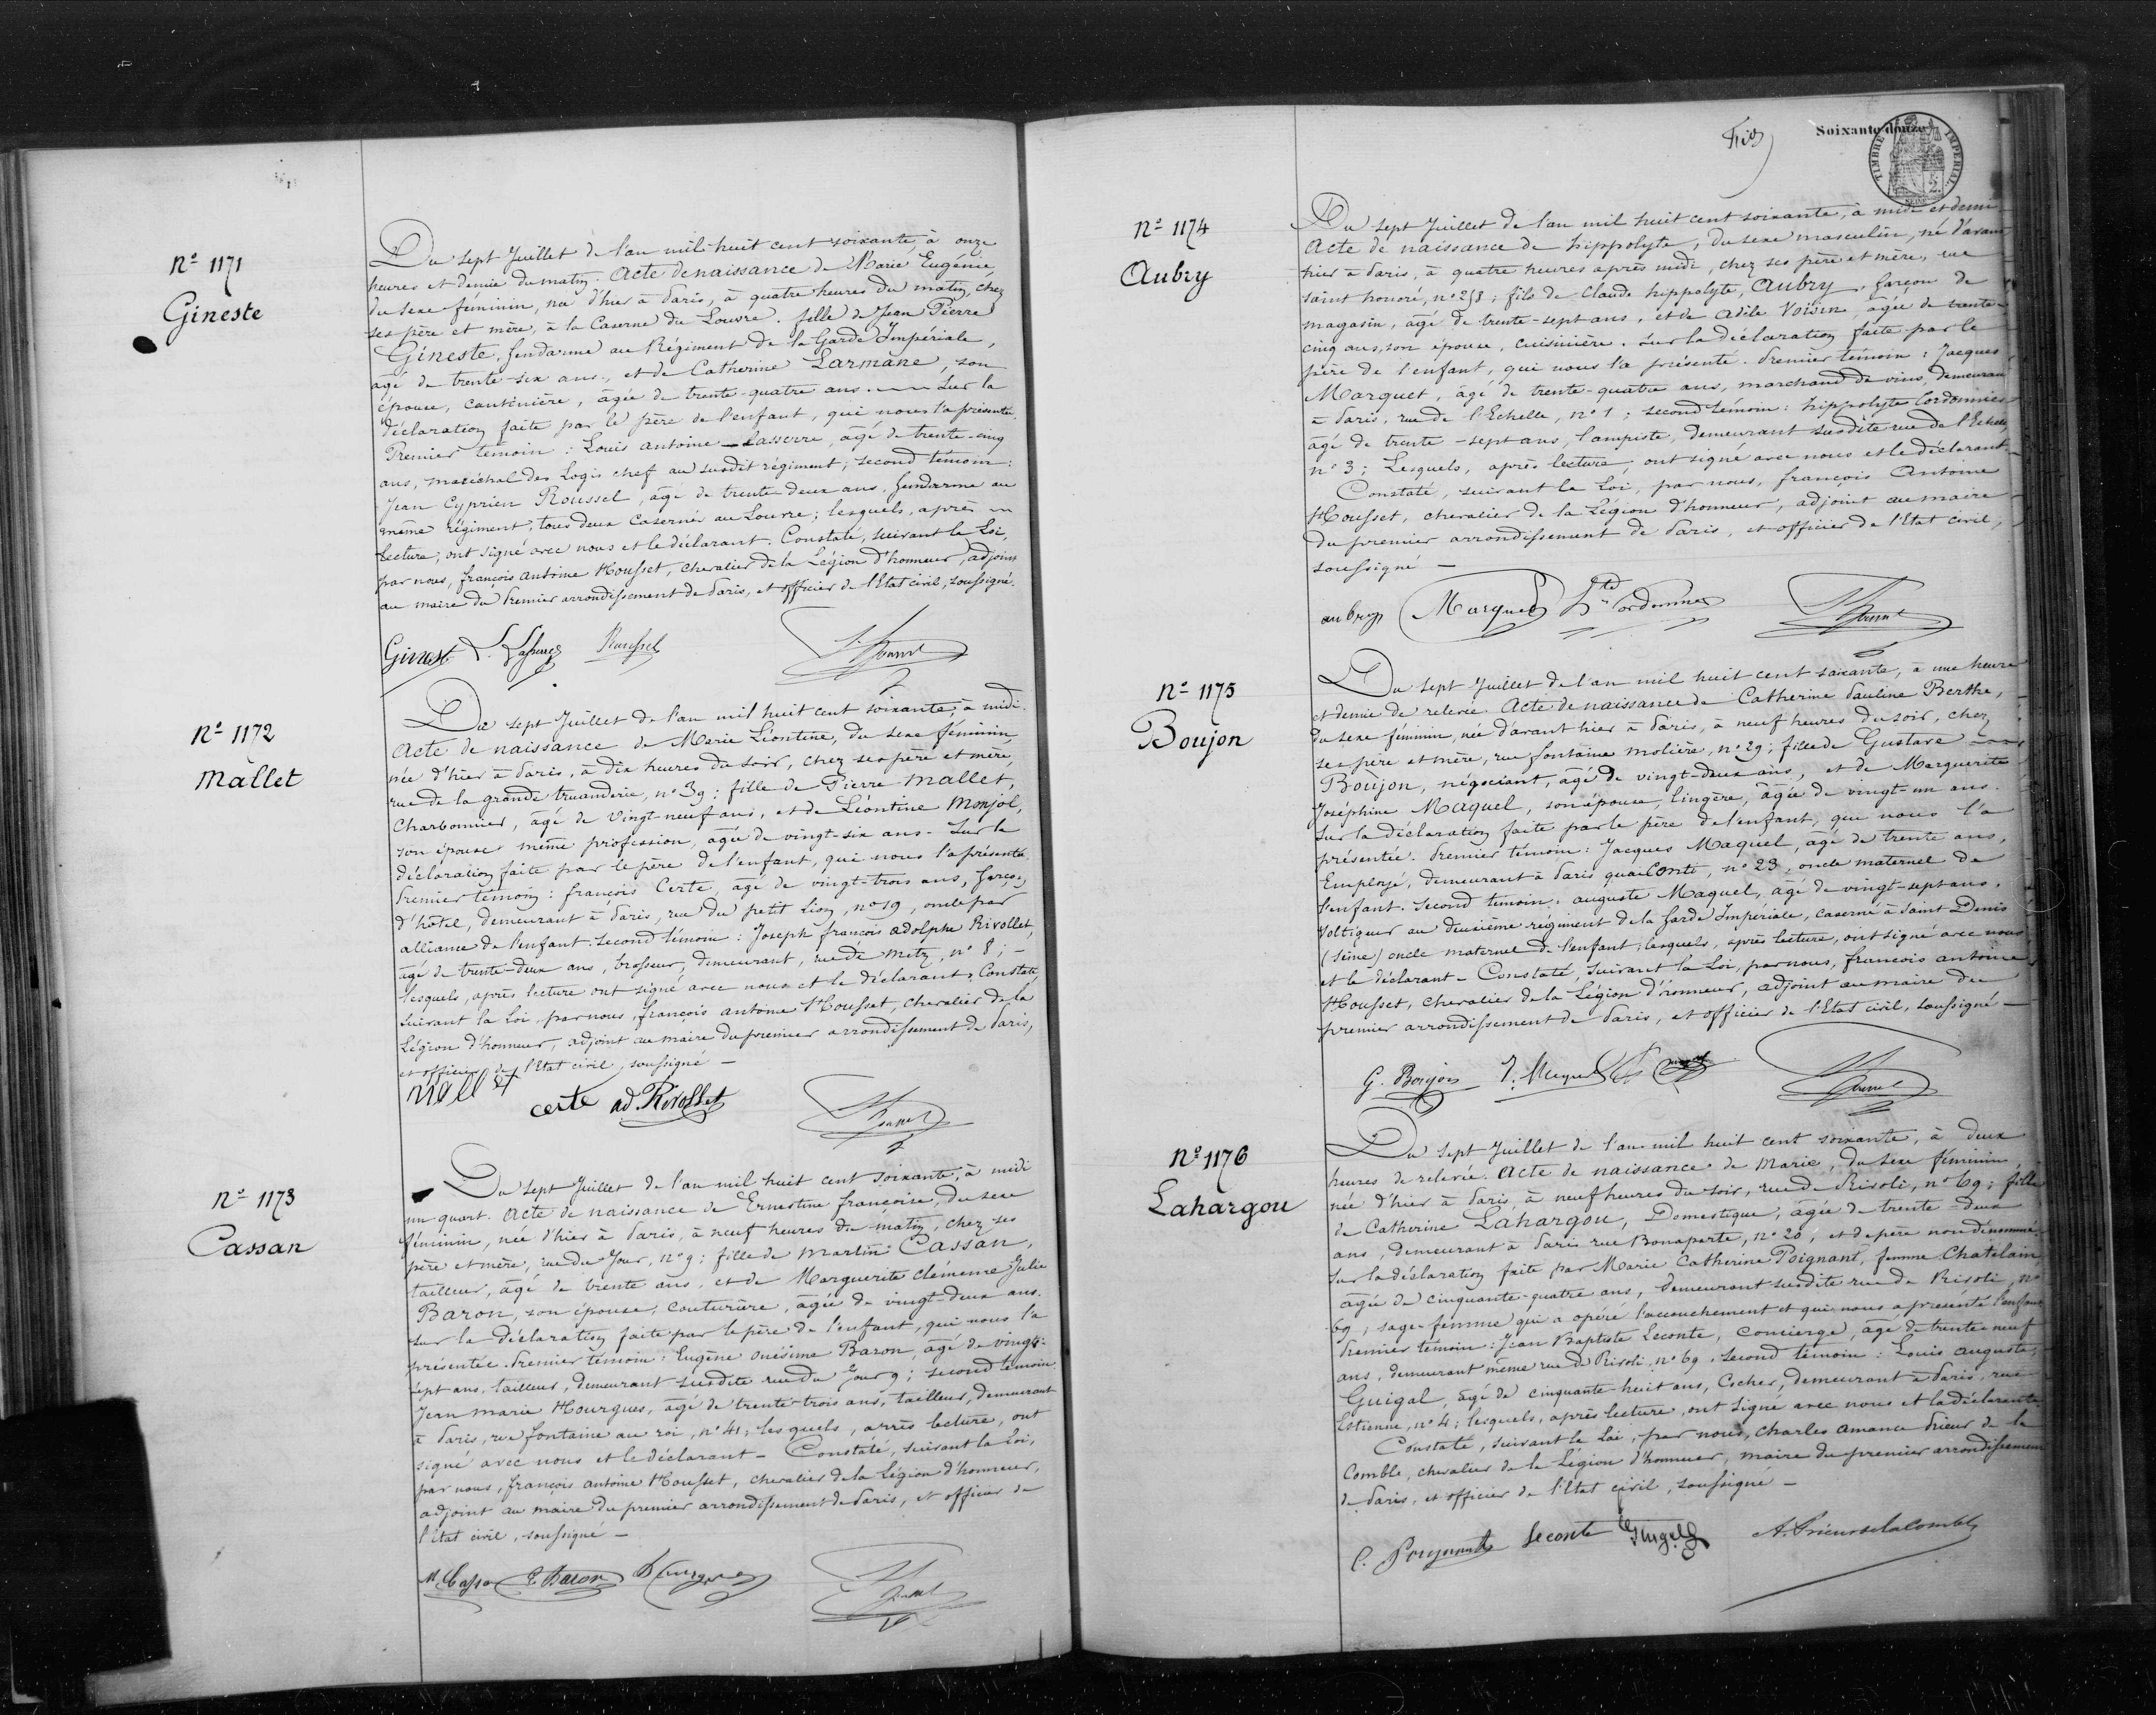 Nº 1171
Gineste
Du sept Juillet de l'an mil huit cent soixante, à onze
heures et demie du matin. Acte de naissance de Marie Eugénie,
du sexe féminin, née d'hier à Paris, à quatre heures du matin, chez
ses père et mère, à la Caserne du Louvre. fille de Jean Pierre
Gineste, Gendarme au Régiment de la Garde Impériale,
âgé de trente-six ans, et de Catherine Larmane, son
épouse, cantinière, âgée de trente-quatre ans. Sur la
déclaration faite par le père de l'enfant, qui nous l'a présentée.
Premier témoin : Louis Antoine Lasserre, âgé de trente-cinq
ans, maréchal des Logis chef au susdit régiment; second témoin :
Jean Cyprien Roussel, âgé de trente-deux ans, Gendarme au
même régiment, tous deux casernés au Louvre; lesquels, après
lecture, ont signé avec nous et le déclarant. Constaté, suivant la Loi,
par nous, françois antoine Housset, chevalier de la Légion d'honneur, adjoint
au maire du Premier arrondissement de Paris, et officier de l'Etat civil, soussigné.
Ginest L. Lasserre Roussel
Nº 1172
Mallet
Du sept Juillet de l'an mil huit cent soixante, à midi.
Acte de naissance de Marie Léontine, du sexe féminin,
née d'hier à Paris, à dix heures du soir, chez ses père et mère,
rue de la grande truanderie, nº 39 : fille de Pierre Mallet,
Charbonnier, âgé de vingt-neuf ans, et de Léontine Monjol,
son épouse même profession, âgée de vingt-six ans. Sur la
déclaration faite par le père de l'enfant, qui nous l'a présentée.
Premier témoin : françois Certe, âgé de vingt-trois ans, garçon
d'hôtel, demeurant à Paris, rue du petit Lion, nº 19, oncle par
alliance de l'enfant second témoin : Joseph françois adolphe Rivollet,
âgé de trente-deux ans, brosseur, demeurant, rue de Metz, nº 8 ; -
lesquels, après lecture ont signé avec nous et le déclarant. Constaté,
suivant la Loi, par nous, françois antoine Housset, chevalier de la
Légion d'honneur, adjoint au maire du premier arrondissement de Paris,
et officier de l'Etat civil, soussigné -
Mallet
certe ad Rivollet
Nº 1173
Cassan
Du sept Juillet de l'an mil huit cent soixante, à midi
un quart. Acte de naissance de Ernestine françoise, du sexe
féminin, née d'hier à Paris, à neuf heures du matin, chez ses
père et mère, rue du Jour, nº 9 : fille de Martin Cassan,
tailleur, âgé de trente ans, et de Marguerite Clémence Julie
Baron, son épouse, couturière, âgée de vingt-deux ans.
Sur la déclaration faite par le père de l'enfant, qui nous l'a
présentée. Premier témoin : Eugène onésime Baron, âgé de vingt-
sept ans, tailleur, demeurant susdite rue du Jour 9; second témoin
Jean marie Hourgues, âgé de trente-trois ans, tailleur, demeurant
à Paris, rue fontaine au roi, nº 41; lesquels, après lecture, ont
signé avec nous et le déclarant - Constaté, suivant la Loi,
par nous, françois antoine Housset, chevalier de la Légion d'honneur,
adjoint au maire du premier arrondissement de Paris, et officier de
l'état civil, soussigné -
M. Cassan E. Baron
Soixante-douze
TIMBRE IMPERIAL
Nº 1174
Aubry
Du sept Juillet de l'an mil huit cent soixante, à midi et demi
Acte de naissance de hippolyte, du sexe masculin, né d'avant
hier à Paris, à quatre heures après midi, chez ses père et mère, rue
saint honoré, fils de Claude hippolyte, Aubry, garçon de
magasin, âgé de trente-sept ans, et de Adèle Voisin, âgée de trente-
cinq ans, son épouse, cuisinière. Sur la déclaration faite par le
père de l'enfant, qui nous l'a présenté. Premier témoin : Jacques
Marquet, âgé de trente-quatre ans, marchand de vins, demeurant
à Paris, rue de l'Echelle, nº 1 ; second témoin : hippolyte Cordonnier
âgé de trente-sept ans, lampiste, demeurant susdite rue de l'Echelle,
nº 3 ; Lesquels, après lecture, ont signé avec nous et le déclarant.
Constaté, suivant la Loi, par nous, françois Antoine
Housset, chevalier de la Légion d'honneur, adjoint au maire
du premier arrondissement de Paris, et officier de l'Etat civil,
soussigné -
aubry Marquet Hte Cordonnier
Nº 1175
Boujon
Du sept Juillet de l'an mil huit cent soixante, à une heure
et demie de relevée. Acte de naissance de Catherine Pauline Berthe,
du sexe féminin, née d'avant hier à Paris, à neuf heures du soir, chez
ses père et mère, rue fontaine molière, nº 29 ; fille de Gustave
Boujon, négociant, âgé de vingt-deux ans, et de Marguerite
Joséphine Maquel, son épouse, lingère, âgée de vingt-un ans.
Sur la déclaration faite par le père de l'enfant, qui nous l'a
présentée. Premier témoin : Jacques Maquel, âgé de trente ans,
Employé, demeurant à Paris quai Conti, nº 23, oncle maternel de
l'enfant. Second témoin : auguste Maquel, âgé de vingt-sept ans,
Voltigeur au deuxième régiment de la Garde Impériale, caserné à Saint Denis
(seine) oncle maternel de l'enfant; lesquels, après lecture, ont signé avec nous
et le déclarant - Constaté, suivant la Loi, par nous, françois antoine
Housset, chevalier de la Légion d'honneur, adjoint au maire du
premier arrondissement de Paris, et officier de l'Etat civil, soussigné -
G. Boujon J. Maquel
Nº 1176
Lahargou
Du sept Juillet de l'an mil huit cent soixante, à deux
heures de relevée. Acte de naissance de Marie, du sexe féminin
née d'hier à Paris, à neuf heures du soir, rue de Rivoli, nº 69 ; fille
de Catherine Lahargou, Domestique, âgée de trente-deux
ans, demeurant à Paris rue Bonaparte, nº 20, et de père non dénommé.
Sur la déclaration faite par Marie Catherine Poignant, femme Chatelain,
âgée de cinquante-quatre ans, demeurant susdite rue de Rivoli, nº
69, sage-femme qui a opéré l'accouchement et qui nous a présenté l'enfant
Premier témoin : Jean Baptiste Leconte, Concierge, âgé de trente-neuf
ans, demeurant même rue de Rivoli, nº 69. Second témoin : Louis auguste,
Guigal, âgé de cinquante huit ans, Cocher, demeurant à Paris, rue
Estienne, nº 4 ; lesquels, après lecture, ont signé avec nous et la déclarante
Constaté, suivant la Loi, par nous, Charles amance Prieur de la
Comble, chevalier de la Légion d'honneur, maire du premier arrondissement
de Paris, et officier de l'Etat civil, soussigné -
C. Poignant Leconte Guigal A. Prieur de la Comble